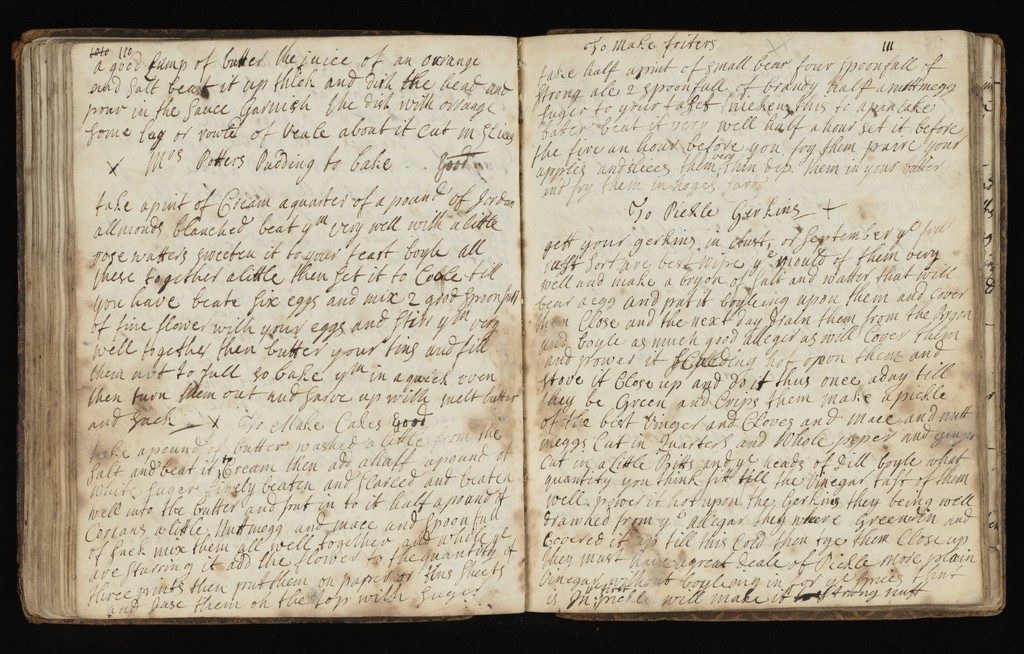 110
a good lump of butter the juice of an orange
and salt beat it up thick and dish the head and
pour in the sauce Garnish the dish with orange
some leg or of veale about it cut in slices
x Mrs Potters Pudding to bake good
take a pint of Cream a quarter of a pound of Jordan
allmonds blanched beat ym very well with a little
rose watter sweeten it to your teast boyle all
these together a little then set it to Coole till
you have beate six eggs and mix 2 good spoonfull
of fine flower with your eggs and stirr ym very
well together then butter your tins and fill
them not to full so bake ym in a quick oven
then turn them out and sarve up with melt butter
and sack x To Make Cakes good
take a pound of butter washed a little from the
salt and beat it to Cream then add a haff a pound of
white suger finely beaten and searced and beaten
well into the butter and put in to it half a pound of
Corrans a little Nuttmegg and mace and spoonfull
of sack mix them all well together and while ye
are sturring it add the flower to the quantity of
three pints then put them on paper or tins sheets
and dust them on the top with suger
To make friters 111
take half a pint of small bear four spoonfull of
strong ale 2 spoonfull of brandy half a nuttmegg
suger to your tast thicken this to a pancake
batter beat it very well half a hour set it before
the fire an hour before you fry them your
apples and slices them very thin dip them in your batter
and fry them in hoges lard
To Pickle Gerkins +
gett your gerkins in or September ye
sort are best wipe ye mould of them very
well and make a bryon of salt and watter that will
bear a egg and put it boyleing upon them and cover
them Close and the next day drain them from the bryon
and boyle as much good alleger as will Cover them
and power it scalding hot upon them and
stove it Close up and do it thus once a day till
they be Green and Crips them make a pickle
of the best Vinger and Cloves and Mace and nutt
meggs Cut in Quarters and Whole peper and ginger
cut in a Little Bitts and ye heads of dill boyle what
quantity you think fitt till the Vinegar tast of them
well power it hot upon the Gerkins they being well
drawned from ye allegar they where Greened in and
Covered it up till this Cold then tye them Close up
they must have a great deale of Pickle more plain
Vinegar without boyleing in for ye spices that
is in first pickle will make it strong nuff